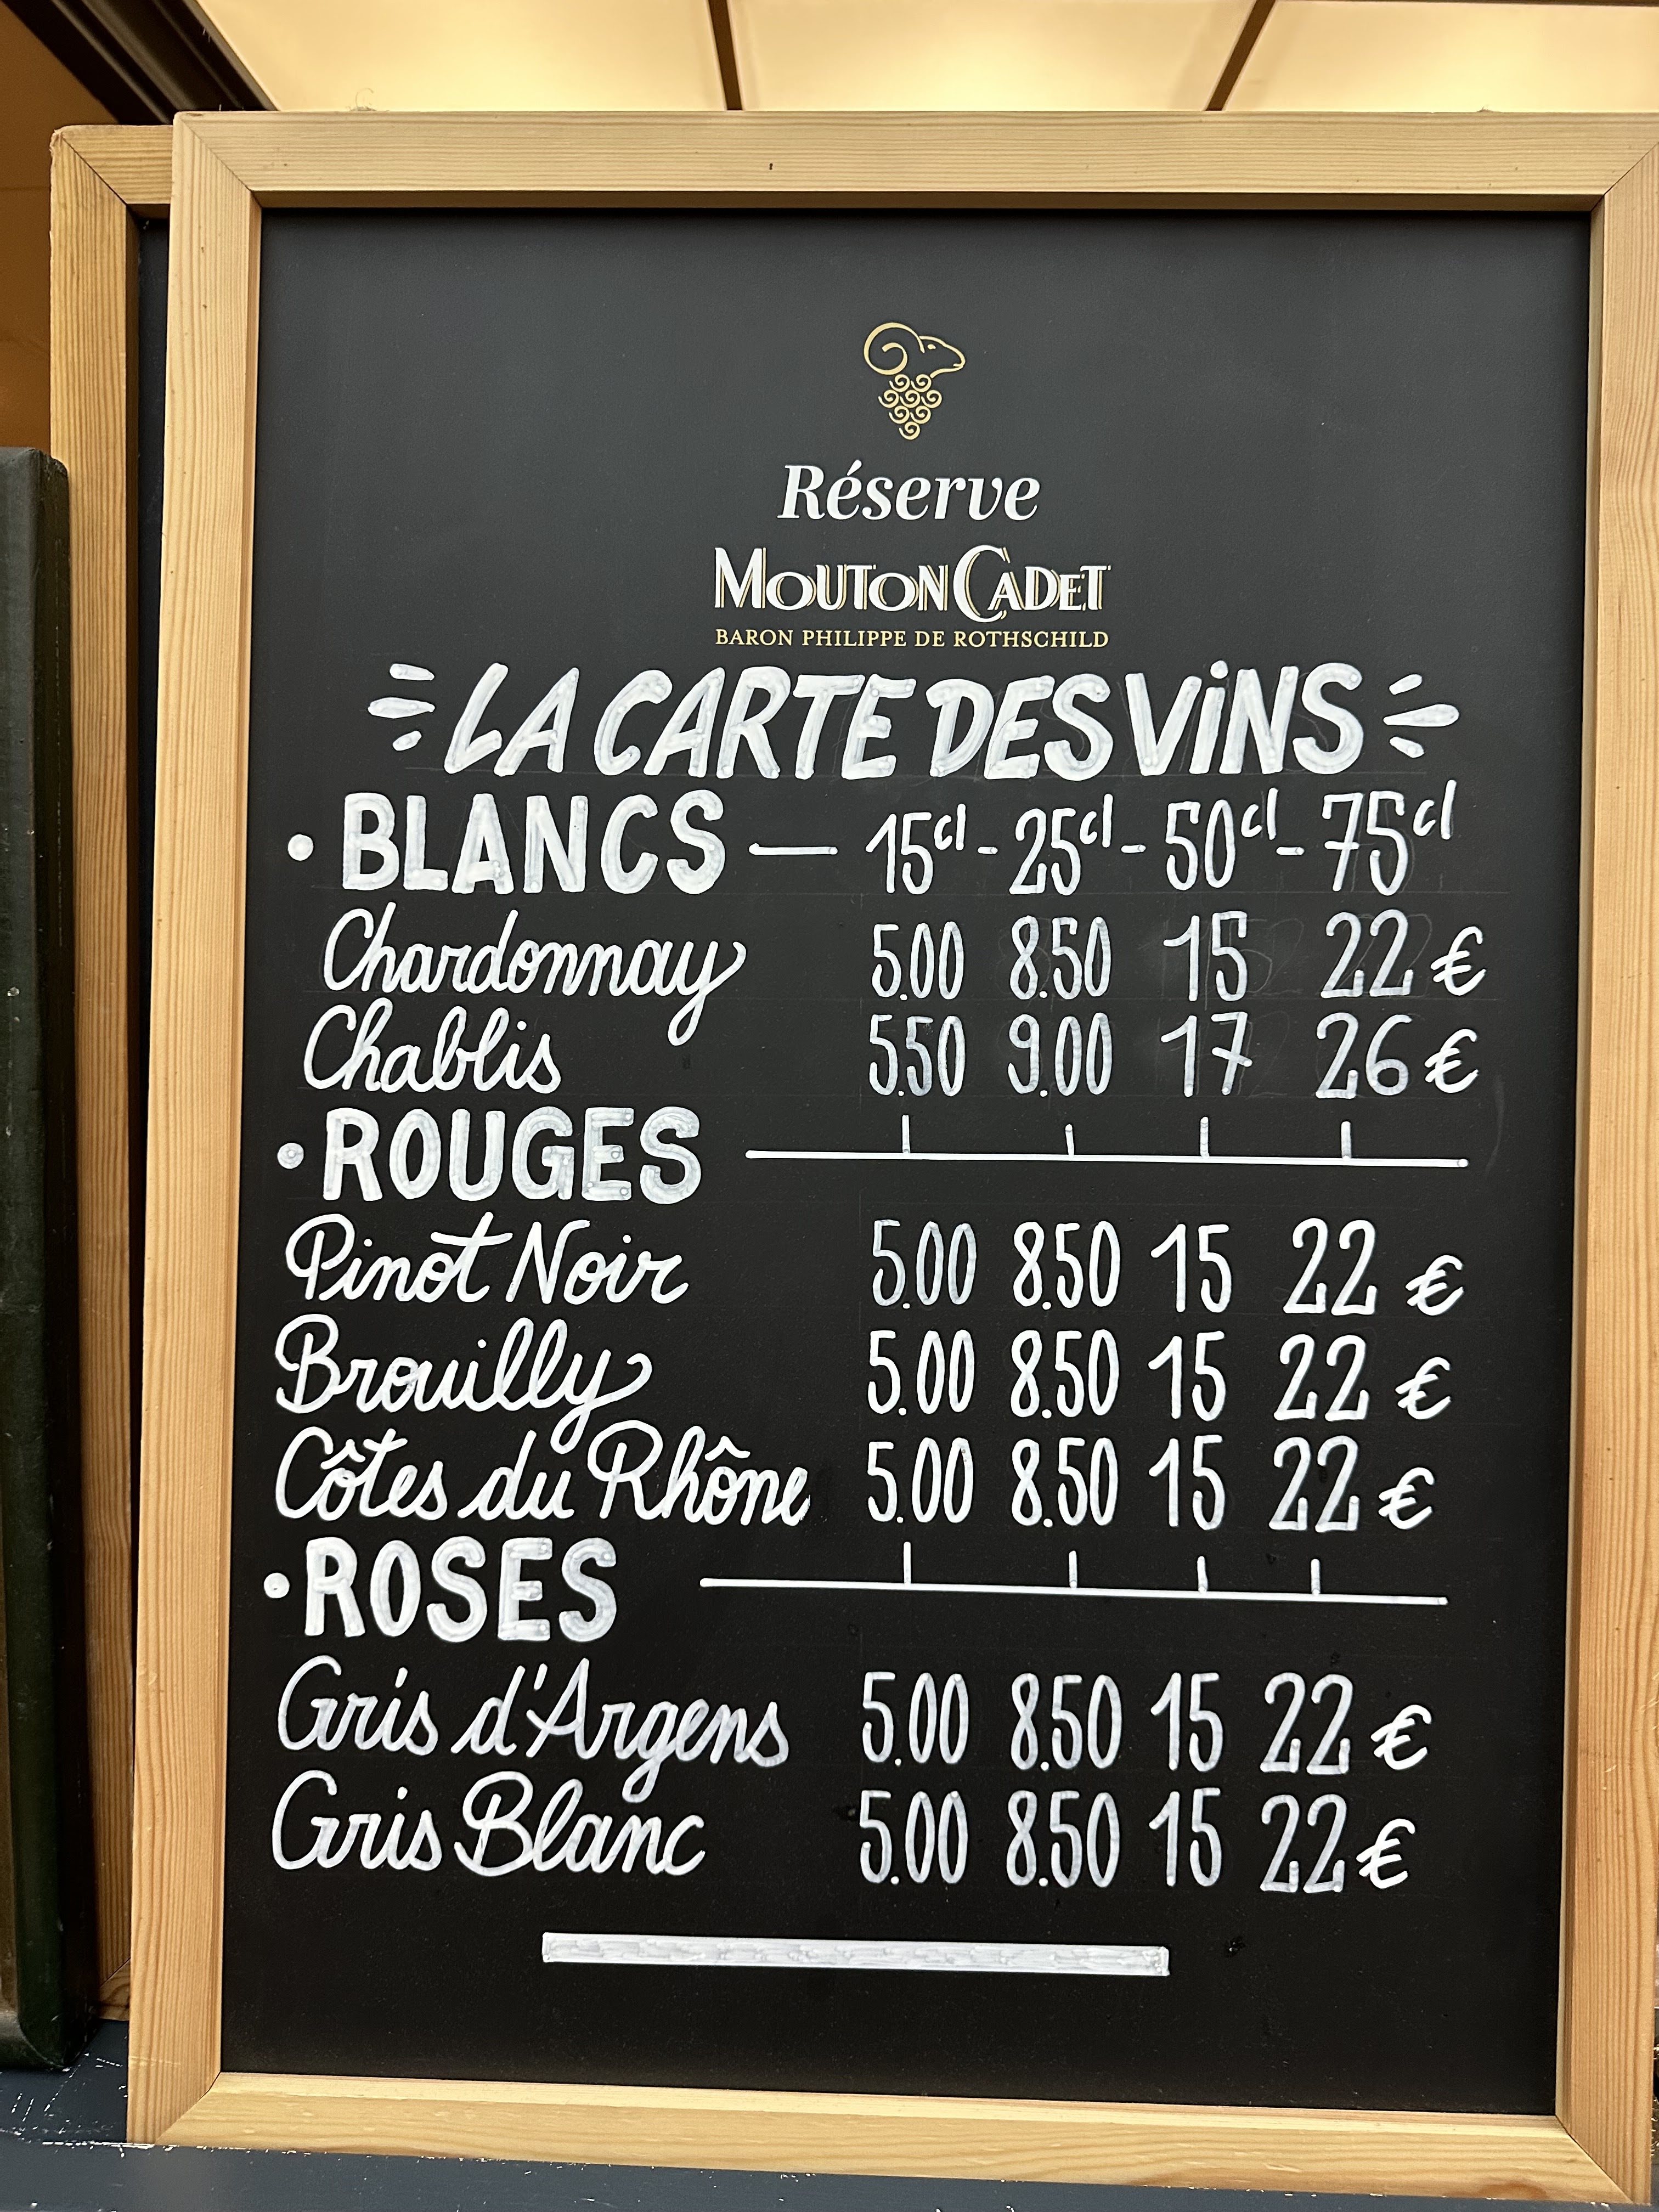 Réserve
MOUTON CADET
BARON PHILIPPE DE ROTHSCHILD
LA CARTE DES ViNS
• BLANCS — 15cl - 25cl - 50cl - 75cl
Chardonnay 5.00 8.50 15 22 €
Chablis 5.50 9.00 17 26 €
• ROUGES
Pinot Noir 5.00 8.50 15 22 €
Brouilly 5.00 8.50 15 22 €
Côtes du Rhône 5.00 8.50 15 22 €
• ROSES
Gris d'Argens 5.00 8.50 15 22 €
Gris Blanc 5.00 8.50 15 22 €